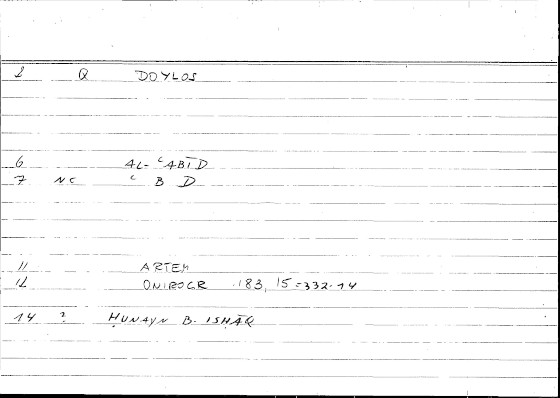 2 Q DOYLOS
6 AL-ʿABĪD
7 NC ʿ B D
11 ARTEM
12 ONIROCR 183, 15 = 332.14
14 ? ḤUNAYN B. ISḤĀQ